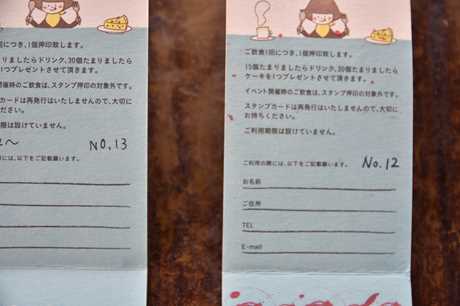 回につき、1個押印致します。
たまりましたらドリンク、30個たまりましたら
1つプレゼントさせて頂きます。
開催時のご飲食は、スタンプ押印の対象外です。
カードは再発行はいたしませんので、大切に
ください。
限は設けていません。
NO.13
には、以下をご記載願います。
ご飲食1回につき、1個押印致します。
15個たまりましたらドリンク、30個たまりましたら
ケーキを1つプレゼントさせて頂きます。
イベント開催時のご飲食は、スタンプ押印の対象外です。
スタンプカードは再発行はいたしませんので、大切に
お持ちください。
ご利用期限は設けていません。
ご利用の際には、以下をご記載願います。 No.12
お名前
ご住所
TEL
E-mail